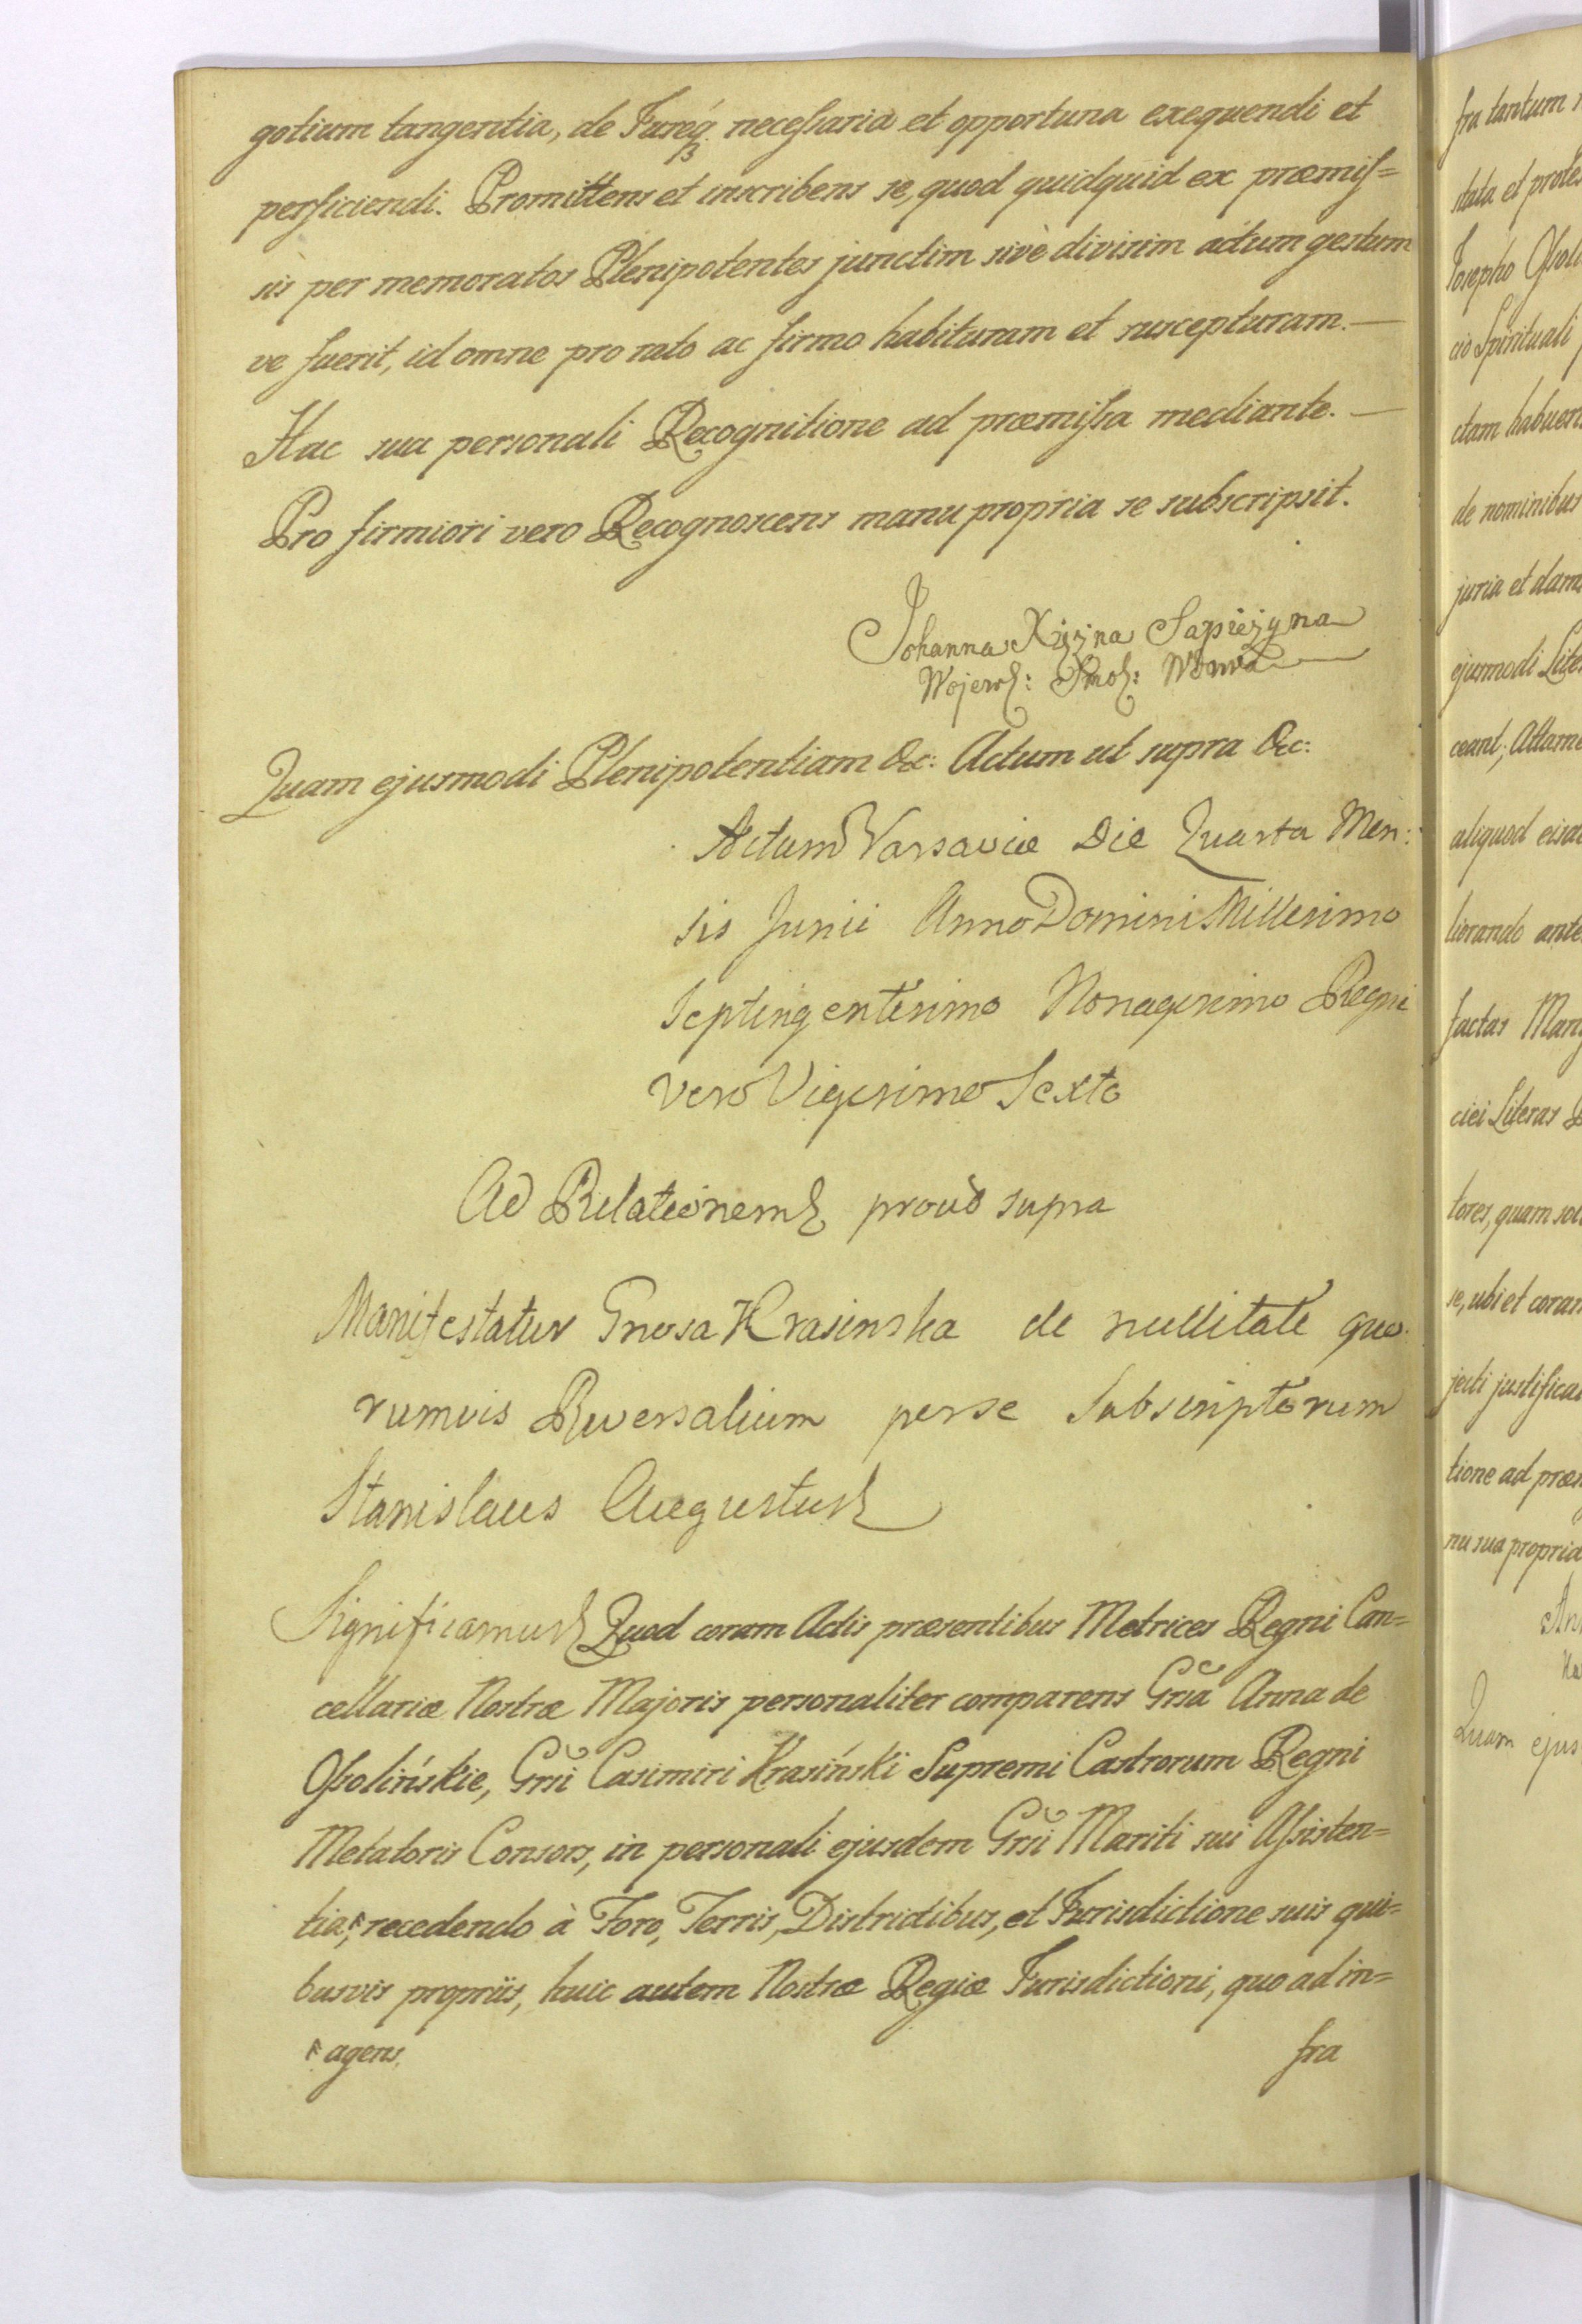 gotium tangentia, de Jureq́ꝫ necessaria et opportuna exequendi et
perficiendi. Promittens et inscribens se, quod quidquid ex præmis=
sis per memoratos Plenipotentes junctim sivè divisim actum gestum
ve fuerit, id omne pro rato ac firmo habituram et suscepturam.—
Hac sua personali Recognitione ad præmissa mediante.—
Pro firmiori vero Recognoscens manu propria se subscripsit.
Johanna Xiężna Sapieżyna
Quam ejusmodi Plenipotentiam &c: Actum ut supra &c:
Actum Varsaviæ Die Quarta Men:
sis Junii Anno Domini Millesimo
Septingentesimo Nonagesimo Regni
vero Vigesimo Sexto
Ad Relationem prout supra
Manifestatur Gnosa Krasinska de nullitate quo
rumvis Reversalium per se Subscriptorum
Stanislaus Augustus
Significamus Quod coram Actis præsentibus Metrices Regni Can=
cellariæ Nostræ Majoris personaliter comparens Grsa Anna de
Ossolińskie, Grsi Casimiri Krasiński Supremi Castrorum Regni
Metatoris Consors, in personali ejusdem Grsi Mariti sui Assisten=
tia, recedendo à Foro, Terris, Districtibus, et Jurisdictione suis qui=
busvis propriis, huic autem Nostræ Regiæ Jurisdictioni, quo ad in=
agens,
fra
fra tantum
stata et protes
Josepho Ossoli
cio Spirituali
ctam habuer
de nominibus
juria et dam
ejusmodi Lite
ceant; Attame
aliquod eisd
liorando ante
factas
ciei Literas
tores, quam
se, ubi et coram
jecti justifica
tione ad præ
nu sua propria
Quam ejus